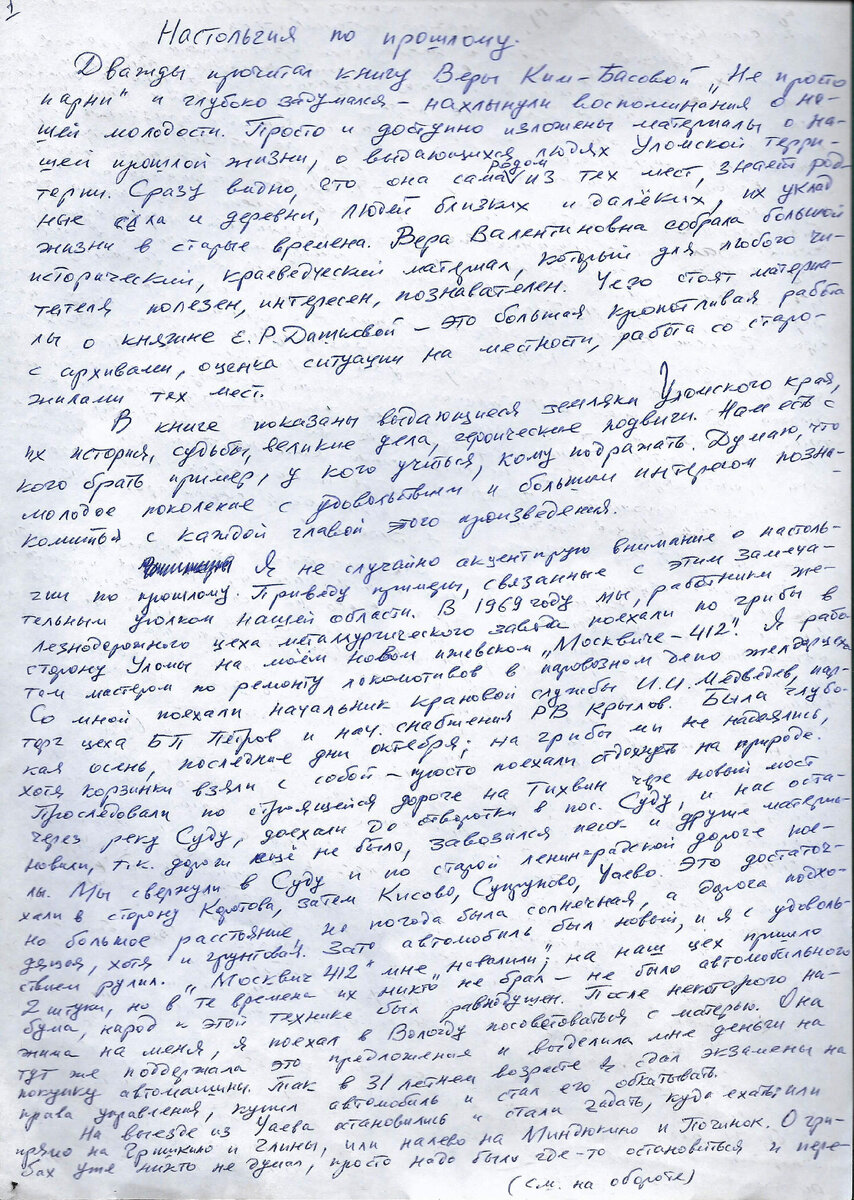 1
Настольгия по прошлому.
Дважды прочитал книгу Веры Ким-Басовой „Не просто
парни" и глубоко задумался – нахлынули воспоминания о на-
шей молодости. Просто и доступно изложены материалы о на-
шей прошлой жизни, о выдающихся людях Уломской терри-
тории. Сразу видно, что она сама родом из тех мест, знает род-
ные сёла и деревни, людей близких и далёких, их уклад
жизни в старые времена. Вера Валентиновна собрала большой
исторический, краеведческий материал, который для любого чи-
тателя полезен, интересен, познавателен. Чего стоят материа-
лы о княгине Е.Р. Дашковой – это большая кропотливая работа
с архивами, оценка ситуации на местности, работа со старо-
жилами тех мест.
В книге показаны выдающиеся земляки Уломского края,
их история, судьбы, великие дела, героические подвиги. Нам есть с
кого брать пример, у кого учиться, кому подражать. Думаю, что
молодое поколение с удовольствием и большим интересом позна-
комиться с каждой главой этого произведения.
Я не случайно акцентирую внимание о настоль-
гии по прошлому. Приведу примеры, связанные с этим замеча-
тельным уголком нашей области. В 1969 году мы, работники же-
лезнодорожного цеха металлургического завода поехали по грибы в
сторону Уломы на моём новом ижевском „Москвиче-412". Я рабо
тал мастером по ремонту локомотивов в паровозном депо желдорцеха
Со мной поехали начальник крановой службы И.И. Медведев, пар-
торг цеха Б П Петров и нач. снабжения Р В Крылов. Была глубо-
кая осень, последние дни октября; на грибы мы не надеялись,
хотя корзинки взяли с собой – просто поехали отдохнуть на природе.
Проследовали по строящейся дороге на Тихвин через новый мост
через реку Суду, доехали до отворотки в пос. Суду, и нас оста-
новили, т.к. дороги ещё не было, завозился песок и другие материа-
лы. Мы свернули в Суду и по старой ленинградской дороге пое-
хали в сторону Коротова, затем Кисово, Супруново, Чаево. Это достаточ-
но большое расстояние но погода была солнечная, а дорога подхо-
дящая, хотя и грунтовая. Зато автомобиль был новый, и я с удоволь-
ствием рулил. „Москвич 412" мне „навалили"; на наш цех пришло
2 штуки, но в те времена их никто не брал – не было автомобильного
бума, народ к этой технике был равнодушен. После некоторого на-
жима на меня, я поехал в Вологду посоветоваться с матерью. Она
тут же поддержала это предложение и выделила мне деньги на
покупку автомашины. Так в 31 летнем возрасте я сдал экзамены на
права управления, купил автомобиль и стал его обкатывать.
На выезде из Чаева остановились и стали гадать, куда ехать: или
прямо на Гришкино и Глины, или налево на Миндюкино и Починок. О гри-
бах уже никто не думал, просто надо было где-то остановиться и пере-
(см. на обороте)